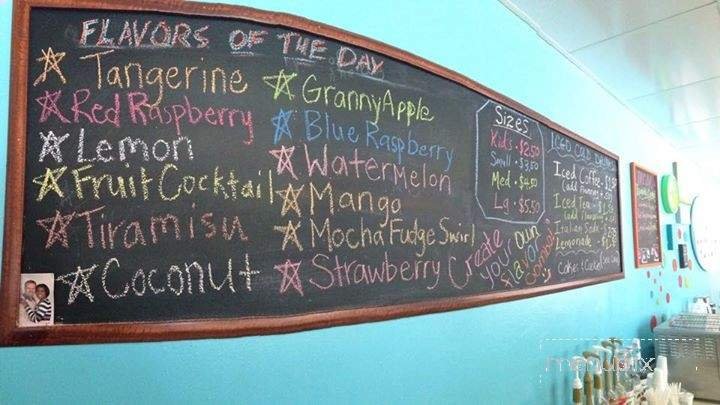 FLAVORS OF THE DAY
Tangerine
Red Raspberry
Lemon
Fruit Cocktail
Tiramisu
Coconut
Granny Apple
Blue Raspberry
Watermelon
Mango
Mocha Fudge Swirl
Strawberry
Create
your own
flavor
Sizes
Kid's • $2.50
Small • $3.50
Med • $4.50
Lg • $5.50
ICED COLD DRINKS
Iced Coffee
(add
Iced Tea
(add
Italian Soda
Lemonade
menupix